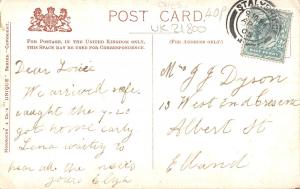 POST CARD.
FOR POSTAGE, IN THE UNITED KINGDOM ONLY,
THIS SPACE MAY BE USED FOR CORRESPONDENCE.
(FOR ADDRESS ONLY.)
40P
UK 21800
STALY
Dear Louie
We arrived safe
caught the 7-20
got home early
Lena waiting to
hear all the news
yours Eliza
Mrs J J Dyson
13 West End Crescent
Albert St
Elland